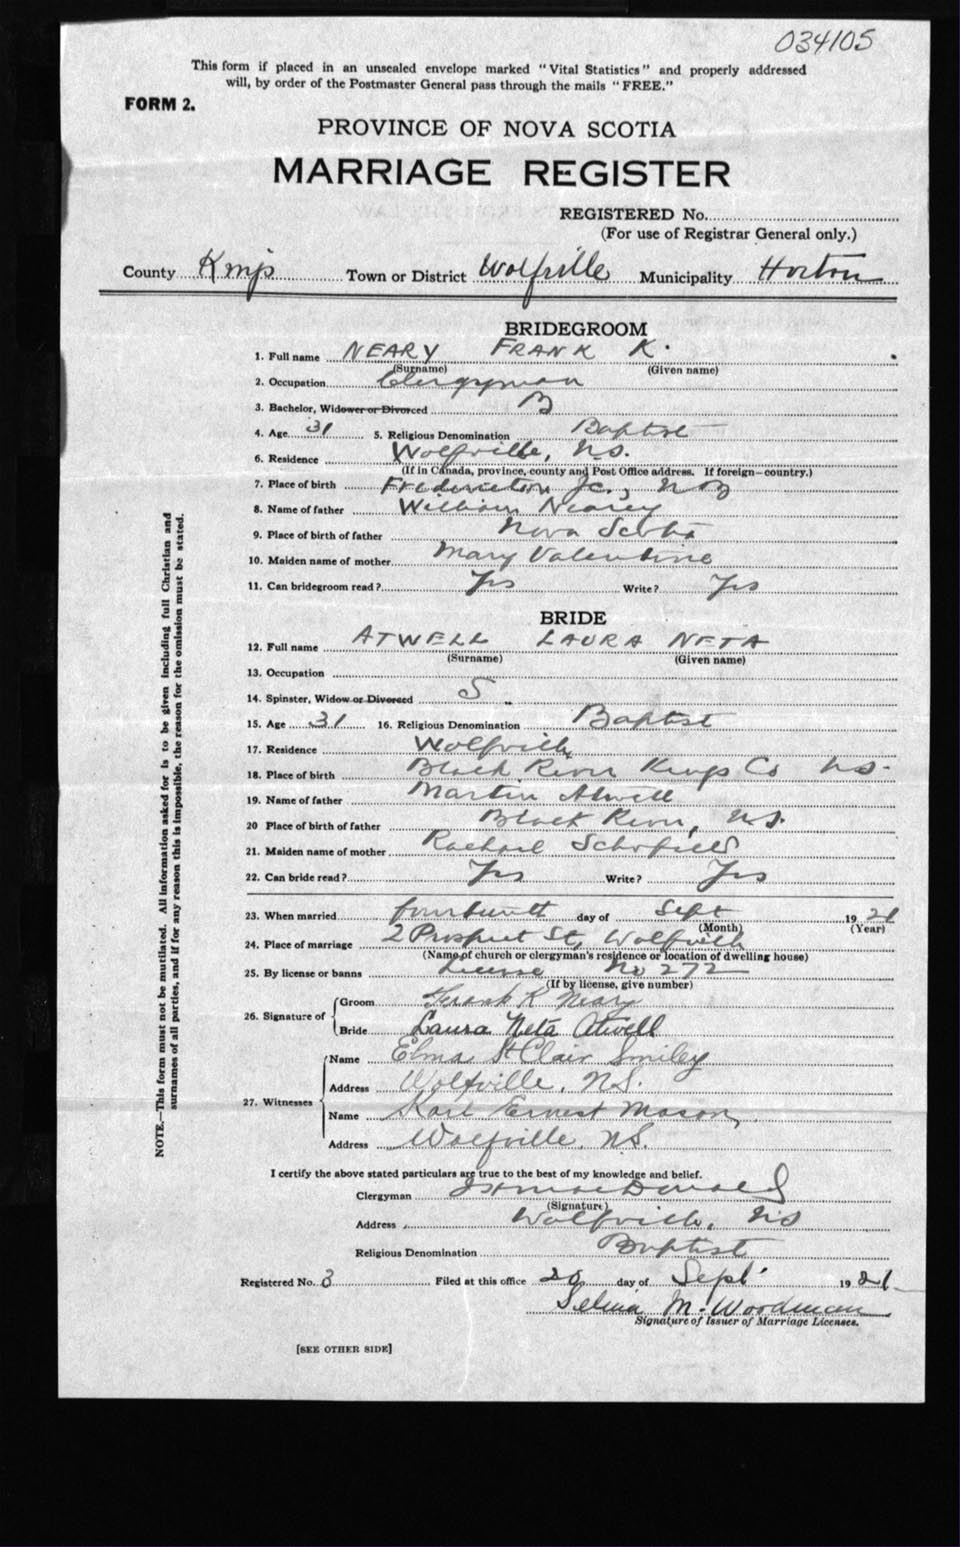 034105
This form if placed in an unsealed envelope marked "Vital Statistics" and properly addressed
will, by order of the Postmaster General pass through the mails "FREE."
FORM 2.
PROVINCE OF NOVA SCOTIA
MARRIAGE REGISTER
REGISTERED No.
(For use of Registrar General only.)
County Kings Town or District Wolfville Municipality Horton
BRIDEGROOM
1. Full name NEARY FRANK K.
(Surname) (Given name)
2. Occupation Clergyman
3. Bachelor, Widower or Divorced B
4. Age 31 5. Religious Denomination Baptist
6. Residence Wolfville, N.S.
(If in Canada, province, county and Post Office address. If foreign—country.)
7. Place of birth Fredericton Jc., N B
8. Name of father William Neary
9. Place of birth of father Nova Scotia
10. Maiden name of mother Mary Valentine
11. Can bridegroom read? Yes Write? Yes
BRIDE
12. Full name ATWELL LAURA NETA
(Surname) (Given name)
13. Occupation
14. Spinster, Widow or Divorced S
15. Age 31 16. Religious Denomination Baptist
17. Residence Wolfville
18. Place of birth Black River Kings Co N.S.
19. Name of father Martin Atwell
20 Place of birth of father Black River, N.S.
21. Maiden name of mother Rachael Schofield
22. Can bride read? Yes Write? Yes
23. When married fourteenth day of Sept 1921
(Month) (Year)
24. Place of marriage 2 Prospect St, Wolfville
(Name of church or clergyman's residence or location of dwelling house)
25. By license or banns License No 272
(If by license, give number)
26. Signature of Groom Frank K Neary
Bride Laura Neta Atwell
27. Witnesses Name Elma St Clair Smiley
Address Wolfville, N.S.
Name Karl Ernest Mason
Address Wolfville, N.S.
I certify the above stated particulars are true to the best of my knowledge and belief.
Clergyman MacDonald
(Signature)
Address Wolfville, N.S.
Religious Denomination Baptist
Registered No. 3 Filed at this office 20 day of Sept 1921
Selina M. Woodman
Signature of Issuer of Marriage Licenses.
[SEE OTHER SIDE]
NOTE.—This form must not be mutilated. All information asked for is to be given including full Christian and
surnames of all parties, and if for any reason this is impossible, the reason for the omission must be stated.